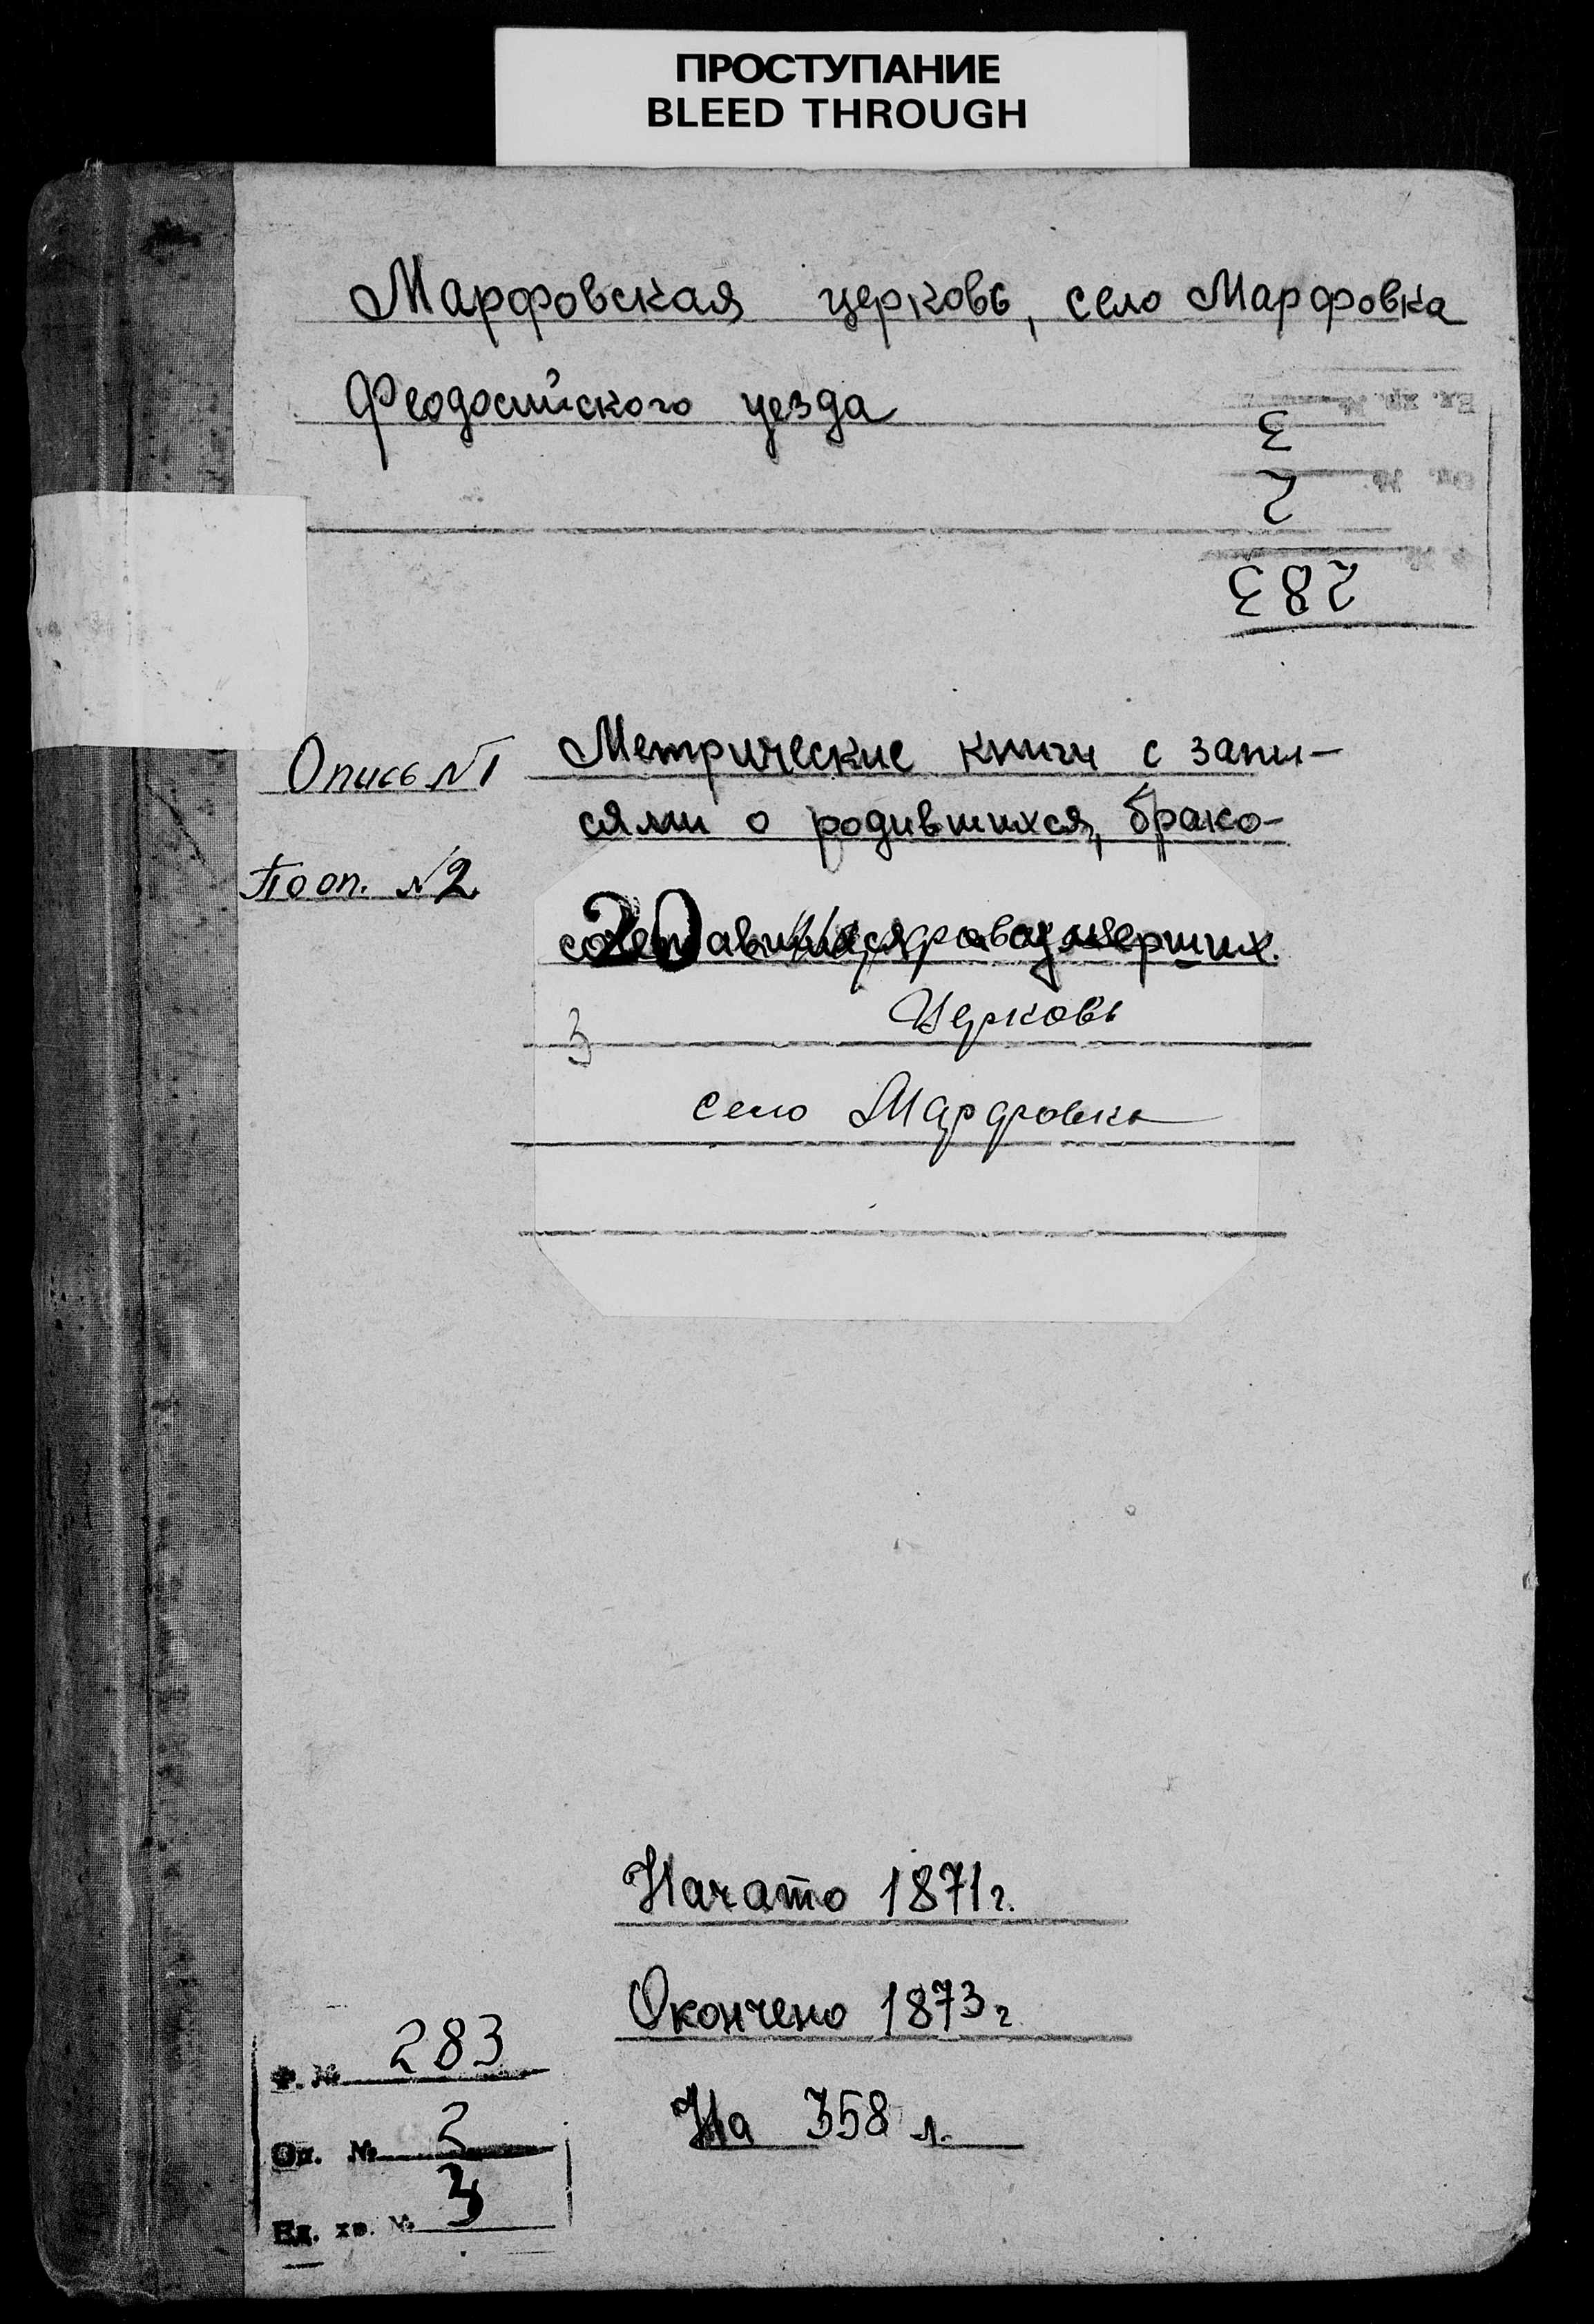 ПРОСТУПАНИЕ
BLEED THROUGH
Марфовская церковь, село Марфовка
Феодосийского уезда
Ед. хр. №
3
Оп. №
2
283
Опись №1
Метрические книги с запи-
сями о родившихся, брако-
По оп. №2
20
умерших.
3
Церковь
село Марфовка
Начато 1871 г.
Окончено 1873 г
На 358 л.
Ф. № 283
Оп. № 2
Ед. хр. № 3